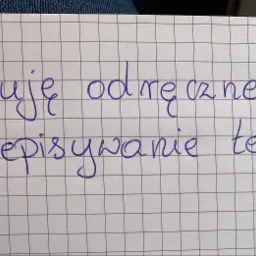 uję odręczne
episywanie te